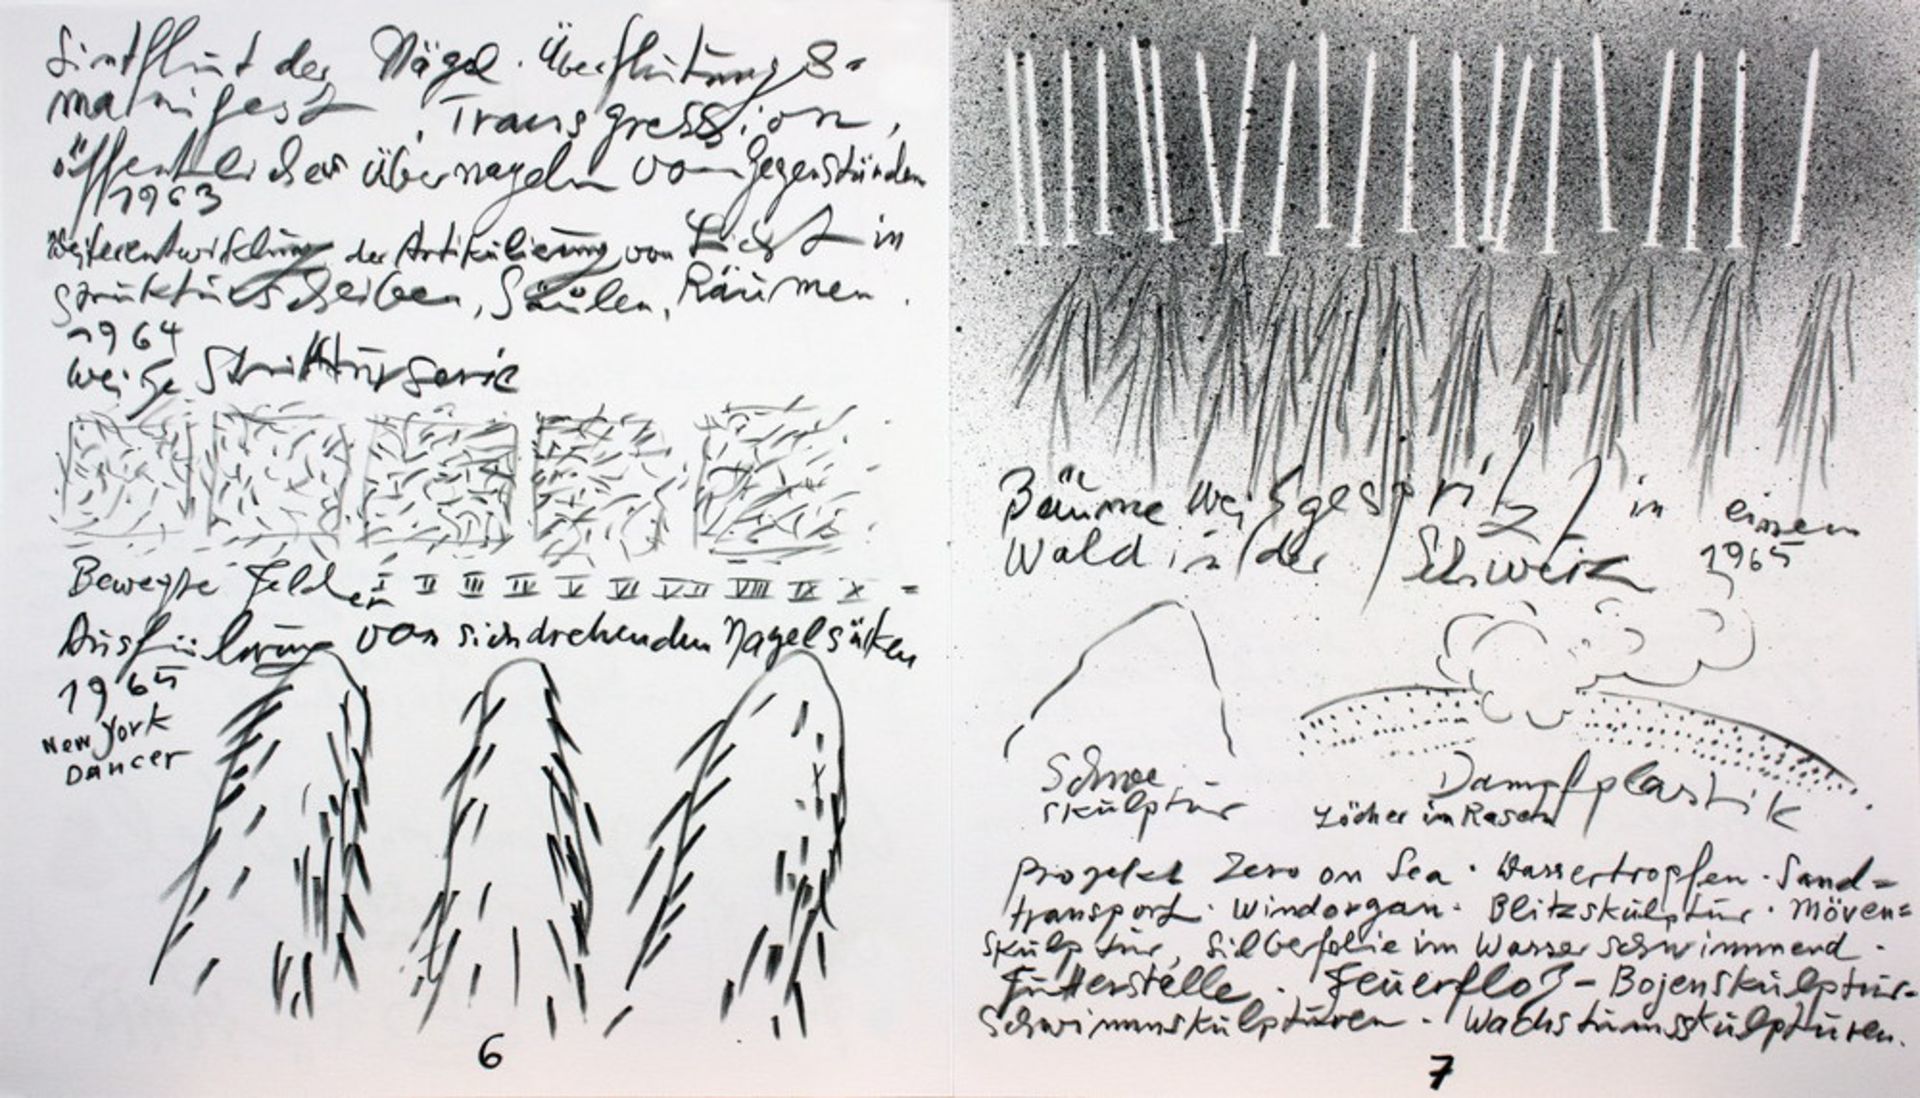 Sintflut der Nägel. Überflutungs=
manifest, Transgression,
öffentliches übernageln von Gegenständen
1963
Weiterentwicklung der Artikulierung von Licht in
Strukturscheiben, Säulen, Räumen.
1964
weiße Strukturserie
Bewegte Felder I II III IV V VI VII VIII IX X =
Ausführung von sichdrehenden Nagelsäcken
1965
New York
Dancer
6
Bäume weißgespritzt in einem
Wald in der Schweiz 1965
Schnee
skulptur
Dampfplastik
Löcher im Rasen
Projekt Zero on Sea · Wassertropfen · Sand=
transport · Windorgan · Blitzskulptur · Möven=
skulptur, Silberfolie im Wasser schwimmend ·
Futterstelle · Feuerfloß - Bojenskulptur-
Schwimmskulpturen - Wachstumsskulpturen.
7